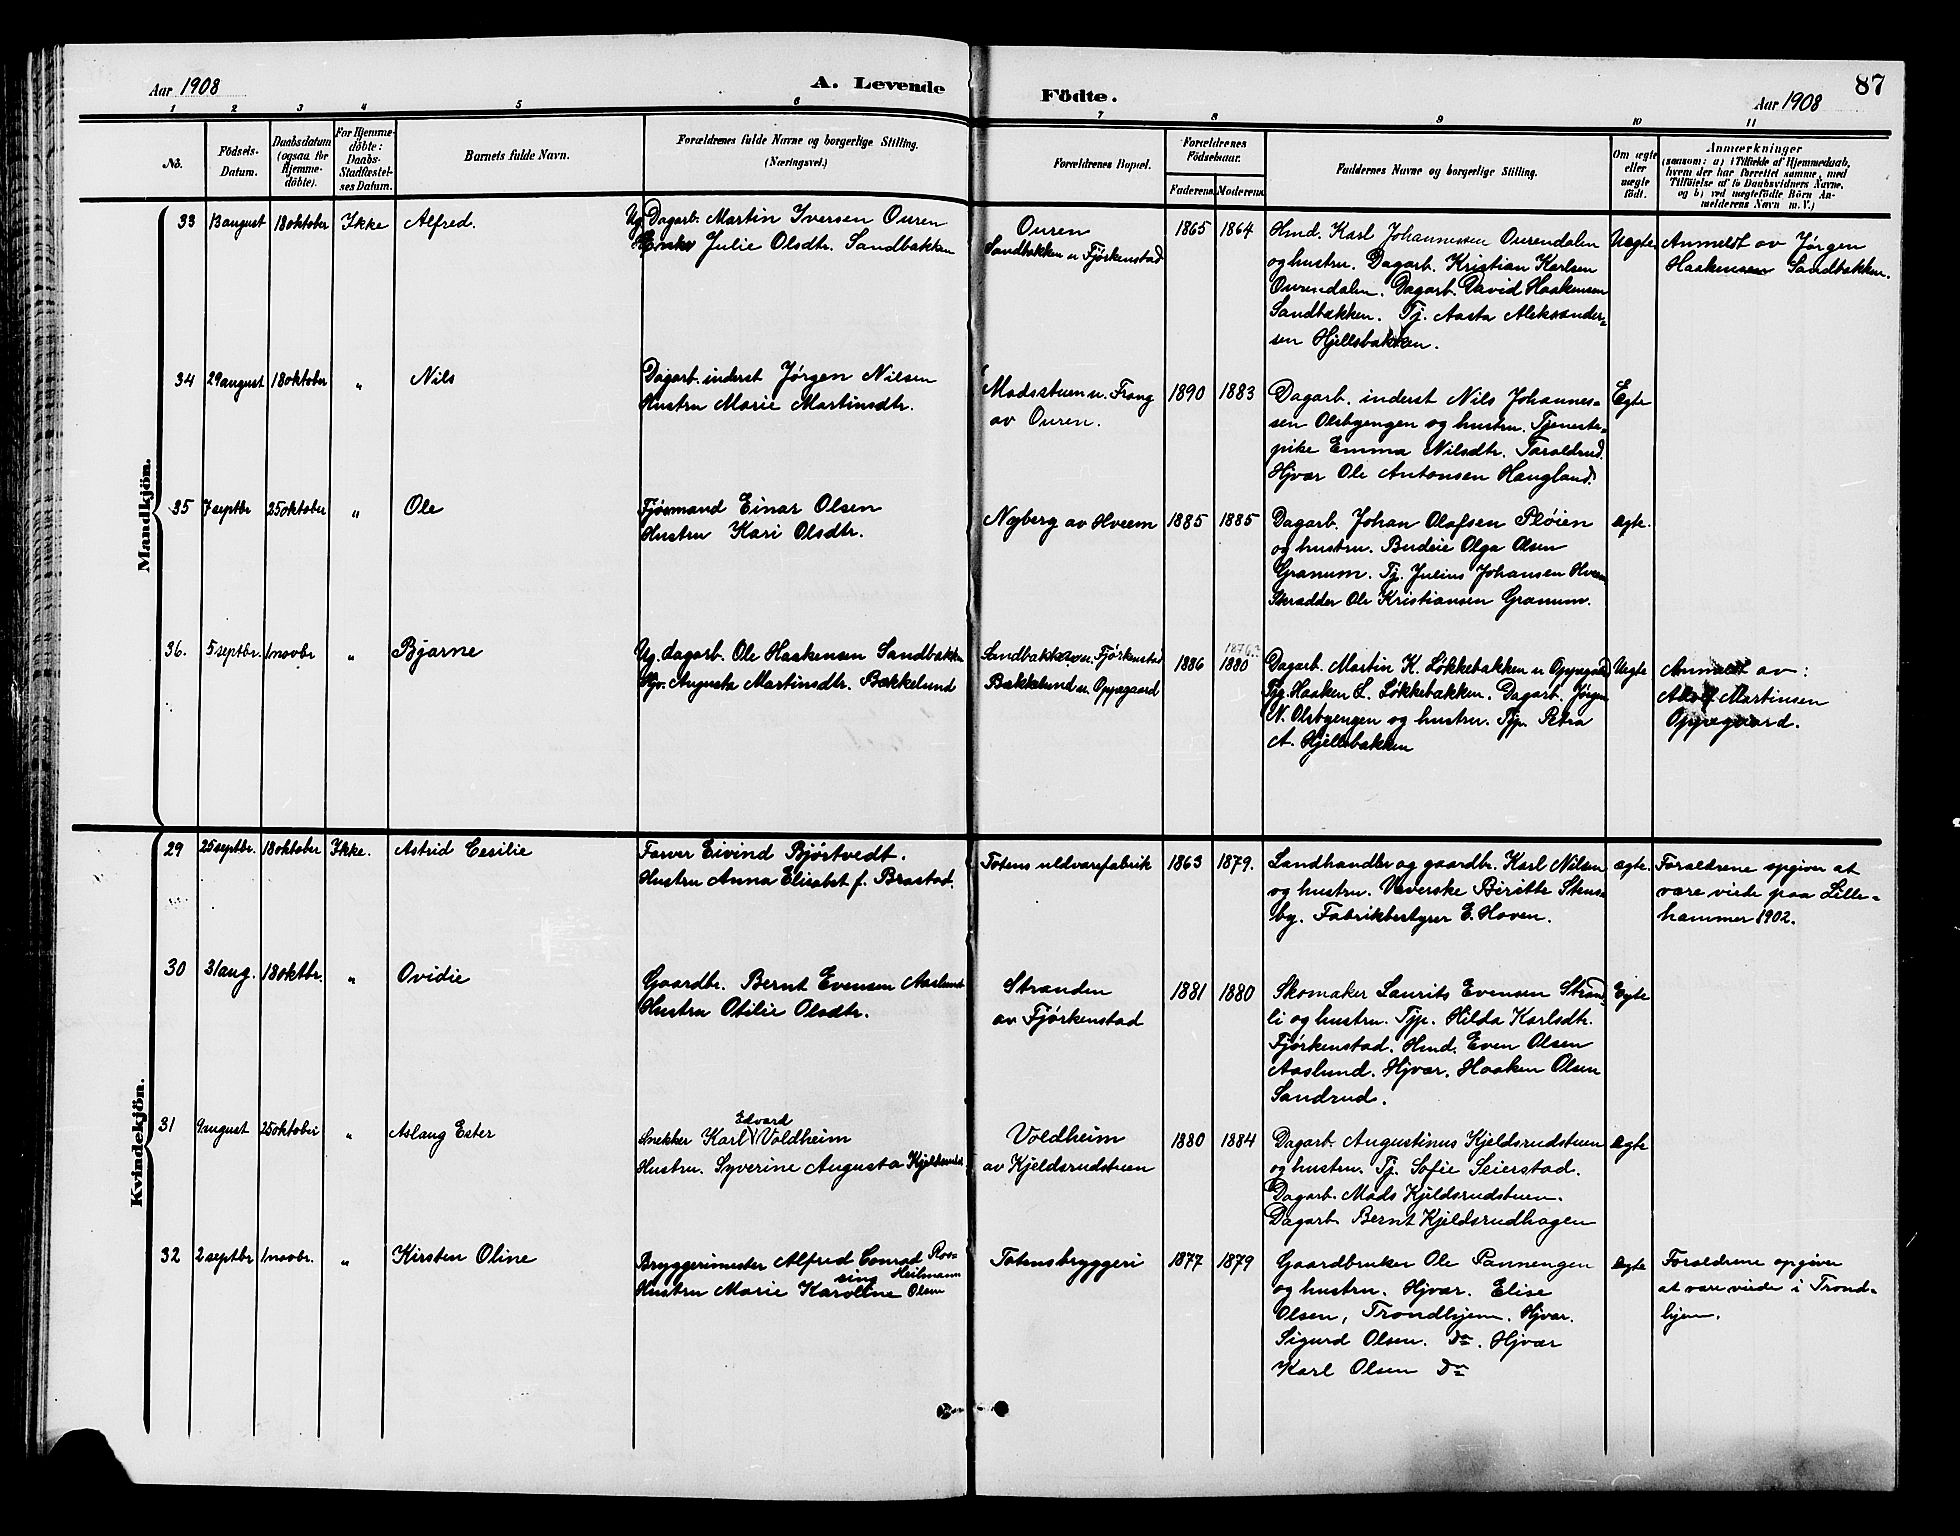 Aar 1908
A. Levende
Födte.
Aar 1908
87
1 2 3 4 5 6 7 8 9 10 11
No.
Födsels-
Datum.
Daabsdatum
(ogsaa for
Hjemme-
döbte).
For Hjemme-
döbte:
Daabs-
Stadfæstel-
ses Datum.
Barnets fulde Navn.
Forældrenes fulde Navne og borgerlige Stilling.
(Næringsvei.)
Forældrenes Bopæl.
Forældrenes
Födselsaar.
Faderens. Moderens.
Faddernes Navne og borgerlige Stilling.
Om ægte
eller
uægte
födt.
Anmærkninger
(saasom: a) i Tilfælde af Hjemmedaab,
hvem der har forrettet samme, med
Tilföielse af to Daabsvidners Navne,
og b) ved uægtefödte Börn An-
melderens Navn m. V.)
Mandkjön.
33 13 august 18 oktober Ikke Alfred.
Ug. Dagarb. Martin Iversen Ouren
Enke Julie Olsdtr. Sandbakken
Ouren
Sandbakken u. Fjørkenstad
1865 1864
Hmd. Karl Johannessen Ourendalen
og hustru. Dagarb. Kristian Karlsen
Ourendalen. Dagarb. David Haakensen
Sandbakken. Tj. Aasta Aleksander-
sen Hjellsbakken.
Uegte
Anmeldt av Jørgen
Haakensen Sandbakken.
34 29 august 18 oktober " Nils
Dagarb. inderst Jørgen Nilsen
Hustru Marie Martinsdtr.
Madsstuen u. Frang
av Ouren.
1890 1883
Dagarb. inderst Nils Johannes-
sen Olsbyengen og hustru. Tjeneste-
pike Emma Nilsdtr. Taraldrud.
Hjvær Ole Antonsen Haugland.
Egte
35 7 septbr 25 oktober " Ole
Fjøsmand Einar Olsen
Hustru Kari Olsdtr.
Nyberg av Hveem
1885 1885
Dagarb. Johan Olafsen Pløien
og hustru. Budeie Olga Olsen
Granum. Tj. Julius Johansen Hveem
Skrædder Ole Kristiansen Granum.
ægte.
36. 5 septbr. 1 novbr " Bjarne
Ug. dagarb. Ole Haakensen Sandbakken
Pige Augusta Martinsdtr. Bækkelund
Sandbakken u. Fjørkenstad
Bækkelund u. Oppegaard
1876?
1886 1880
Dagarb. Martin K. Løkkebakken u. Oppegaard
Haaken L. Løkkebakken. Dagarb. Jørgen
N. Olsbyengen og hustru. Tjp. Petra
A. Hjellsbakken
Uegte
Anmeldt av:
Martinsen
Oppegaard.
Kvindekjön.
29 25 septbr. 18 oktober Ikke. Astrid Cecilie
Farver Eivind Bjørtvedt.
Hustru Anna Elisabet f. Brastad.
Totens uldvarefabrik
1863 1879.
Landhandler og gaardbr. Karl Nilsen
og hustru. Væverske Beritte Stens-
by. Fabrikbestyrer E. Hoven.
ægte.
Forældrene opgiver at
være viede paa Lille-
hammer 1902.
30 31 aug. 18 oktbr. " Ovidie
Gaardbr. Bernt Evensen Aaslund
Hustru Otilie Olsdtr.
Stranden
av Fjørkenstad
1881 1880
Skomaker Laurits Evensen Strand-
li og hustru. Tjp. Hilda Karlsdtr.
Fjørkenstad. Hmd. Even Olsen
Aaslund. Hjvær. Haaken Olsen
Sandrud.
Egte
31 9 august 25 oktober " Aslaug Ester
Edvard
Snekker Karl Voldheim
Hustru. Syverine Augusta Kjeldsrud
Voldheim
av Kjeldsrudstuen
1880 1884
Dagarb. Augustinus Kjeldsrudstuen
og hustru. Tj. Sofie Seierstad.
Dagarb. Mads Kjeldsrudstuen.
Dagarb. Bernt Kjeldsrudhagen
ægte
32 2 septbr 1 novbr. " Kirsten Oline
Bryggerimester Alfred Conrad Roo-
sing Heilmann
Hustru Marie Karoline Olsen
Totensbryggeri
1877 1879
Gaardbruker Ole Pannengen
og hustru. Hjvær. Elise
Olsen, Trondhjem. Hjvær.
Sigurd Olsen. Do. Hjvær
Karl Olsen Do
ægte
Forældrene opgiver
at være viede i Trond-
hjem.